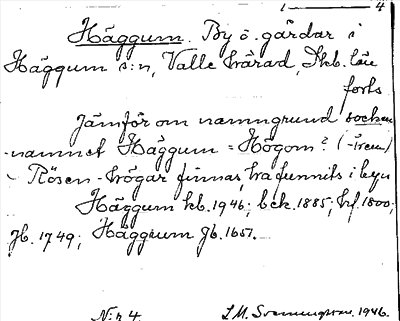 1 — 4
Häggum. By o. gårdar i
Häggum s:n, Valle härad, Skb. län
forts.
Jämför om namngrund socken
-namnet Häggum = Högom? (-iren)
Rösen-högar finnas, ha funnits i byn
Häggum kb. 1946; bek. 1885; hf. 1800;
Jb. 1749; Häggum Jb. 1651.
N:r 4 J.M. Svenningsson. 1946.